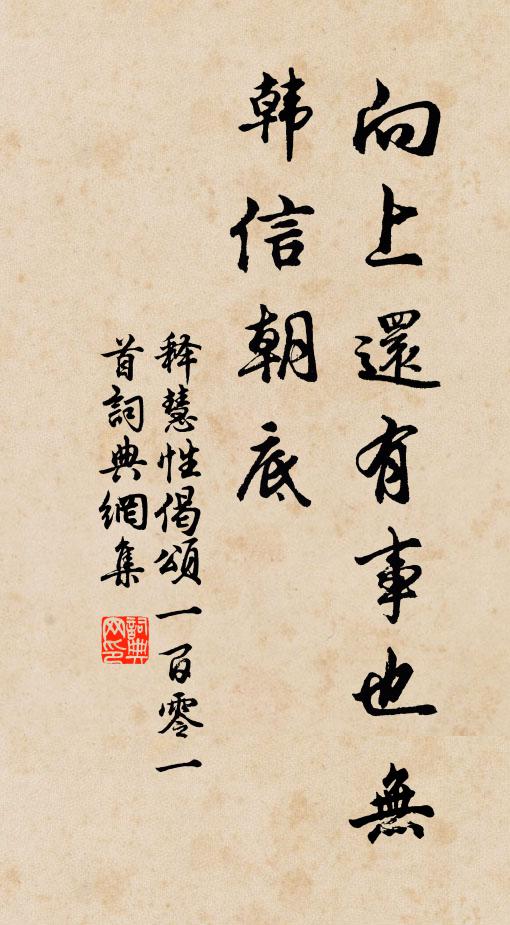 向上還有事也無
韩信朝底
释慧性偈頌一百零一
首詞典網集
詞典网印